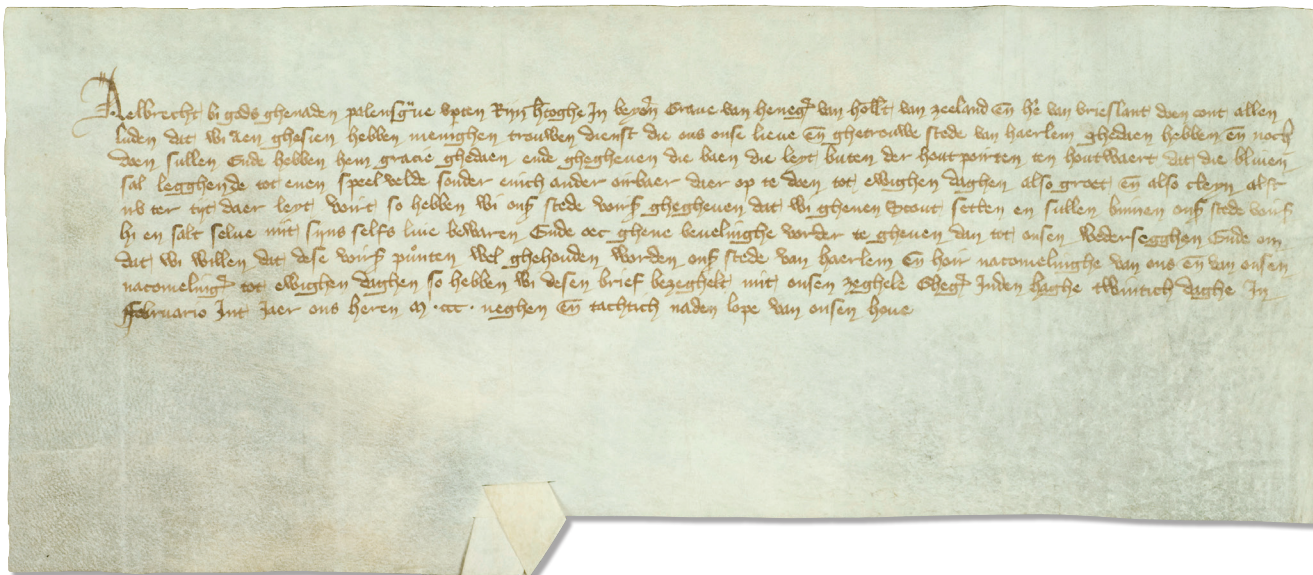 Aelbrecht bi gods ghenaden palensgue upten Rijn htoghe In beyern Graue van heneg van holl van zeeland en he van vrieslant doen cont allen
luden dat wi aen ghesien hebben menighen trouwen dienst die ons onse lieve en ghetrouwe stede van haerlem ghedaen hebben en noch
doen sullen Ende hebben hem gracie ghedaen ende ghegheven die baen die leyt buten der houtpoirten ten houtwaert dat die bliuen
sal legghende tot enen speel velde sonder enich ander oirbaer daer op te doen tot ewighen daghen also groet en also cleyn als
nv ter tijt daer leyt voirt so hebben wi onss stede voirs ghegheven dat wi ghenen Scout setten en sullen binnen onss stede voirs
hi en salt selue mit sijns selfs liue bewaren Ende oec ghene beuelinghe vorder te gheuen dan tot onsen wedersegghen Ende om
dat wi willen dat dese voirs punten wel ghehouden worden onss stede van haerlem en hoir nacomelinghe van ons en van onsen
nacomeling tot ewighen daghen so hebben wi desen brief bezeghelt mit onsen zeghele Gheg Inden haghe twintich daghe In
februario Int Jaer ons heren M ccc neghen en tachtich naden lope van onsen houe